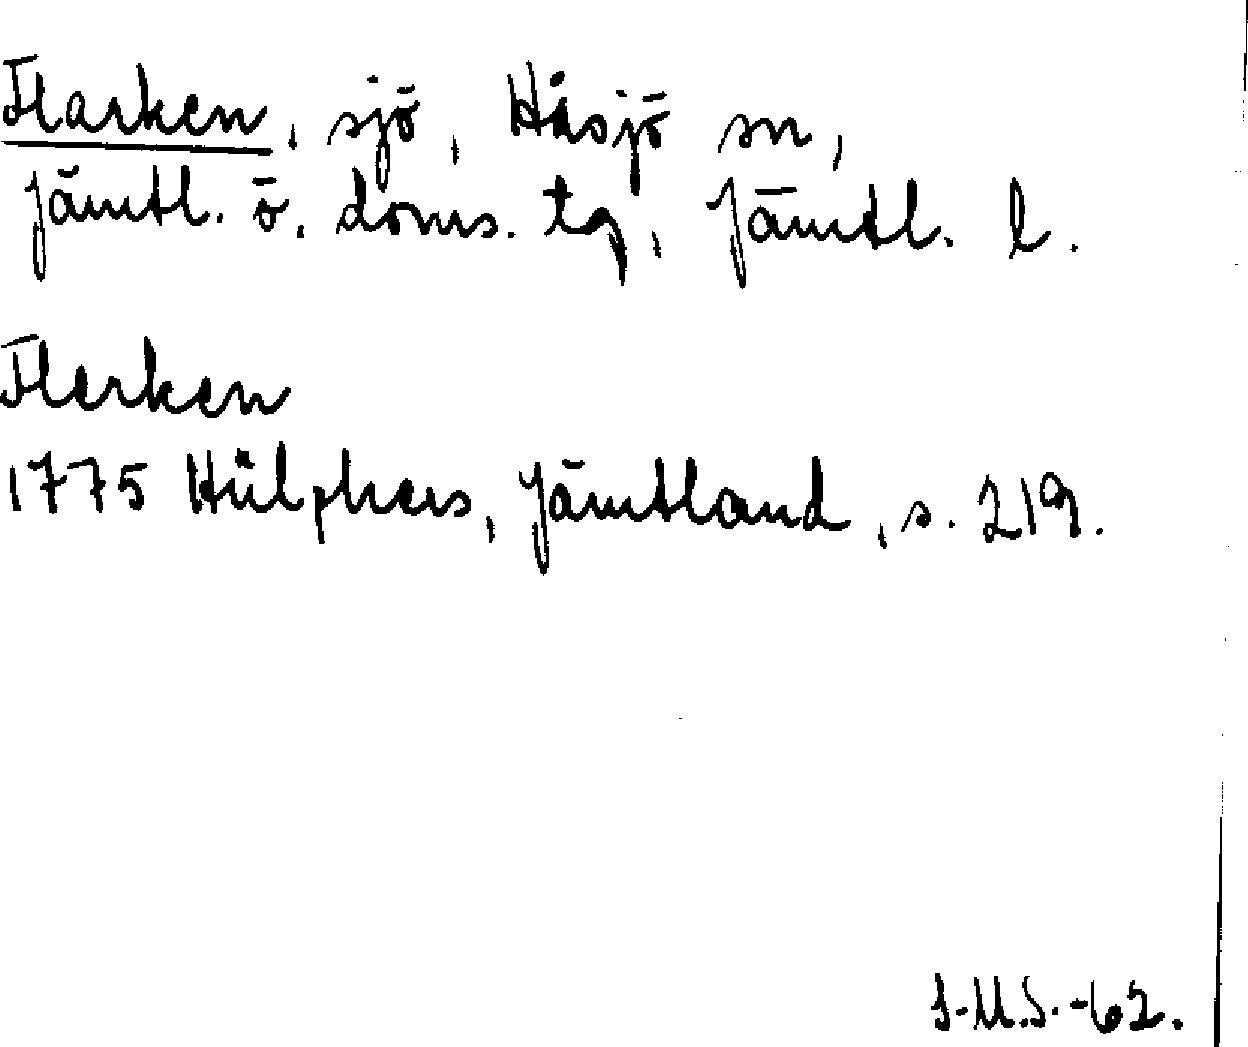 Flarken, sjö, Håsjö sn,
Jämtl. ö. doms. tg, Jämtl. l.
Flerken
1775 Hülphers, Jämtland, s. 219.
S-M.S.-62.